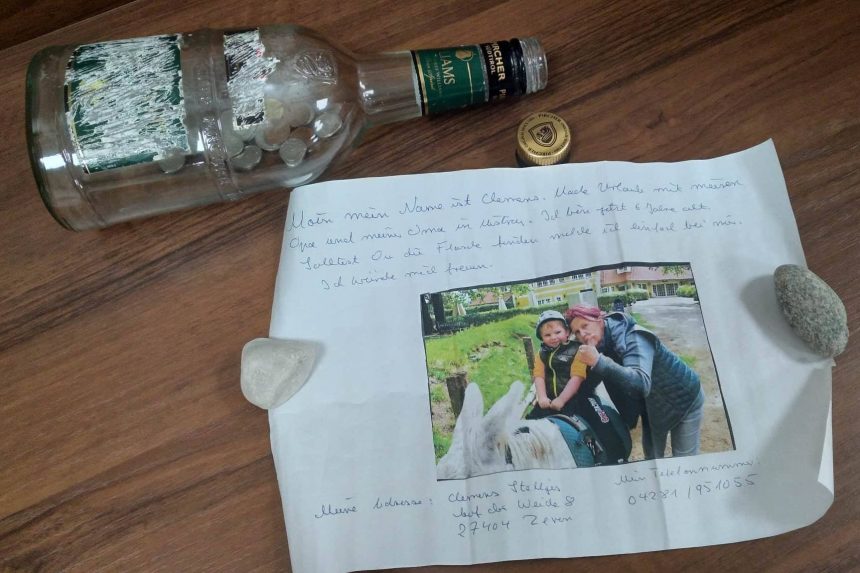 IAMS
PIRCHER
SÜDTIROL
PIRCHER
Moin mein Name ist Clemens. Mache Urlaub mit meinem
Opa und meiner Oma in Ustroń. Ich bin jetzt 6 Jahre alt.
Solltest Du die Flasche finden melde dich einfach bei mir.
Ich würde mich freuen.
Meine Adresse: Clemens
Auf der Weide 8
27404 Zeven
Mein Telefonnummer:
04281/951055